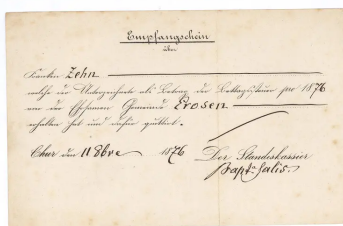 Empfangschein
über
Franken Zehn
welche der Unterzeichnete als Betrag der Bettagssteuer pro 1876
von der Ehrsamen Gemeinde Erosen
erhalten hat und dafür quittirt.
Chur den 11 8bre 1876
Der Standeskassier
Bapt. Salis.